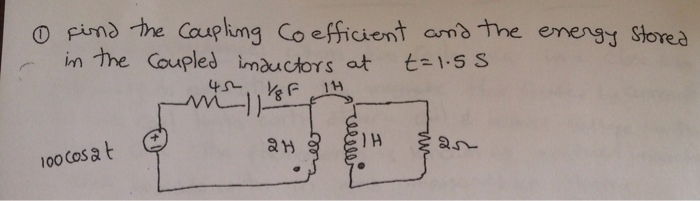 ① Find the Coupling Coefficient and the energy stored
in the Coupled inductors at t=1.5 S
4Ω 1/8 F 1H
100 cos 2t 2H 1H 2Ω